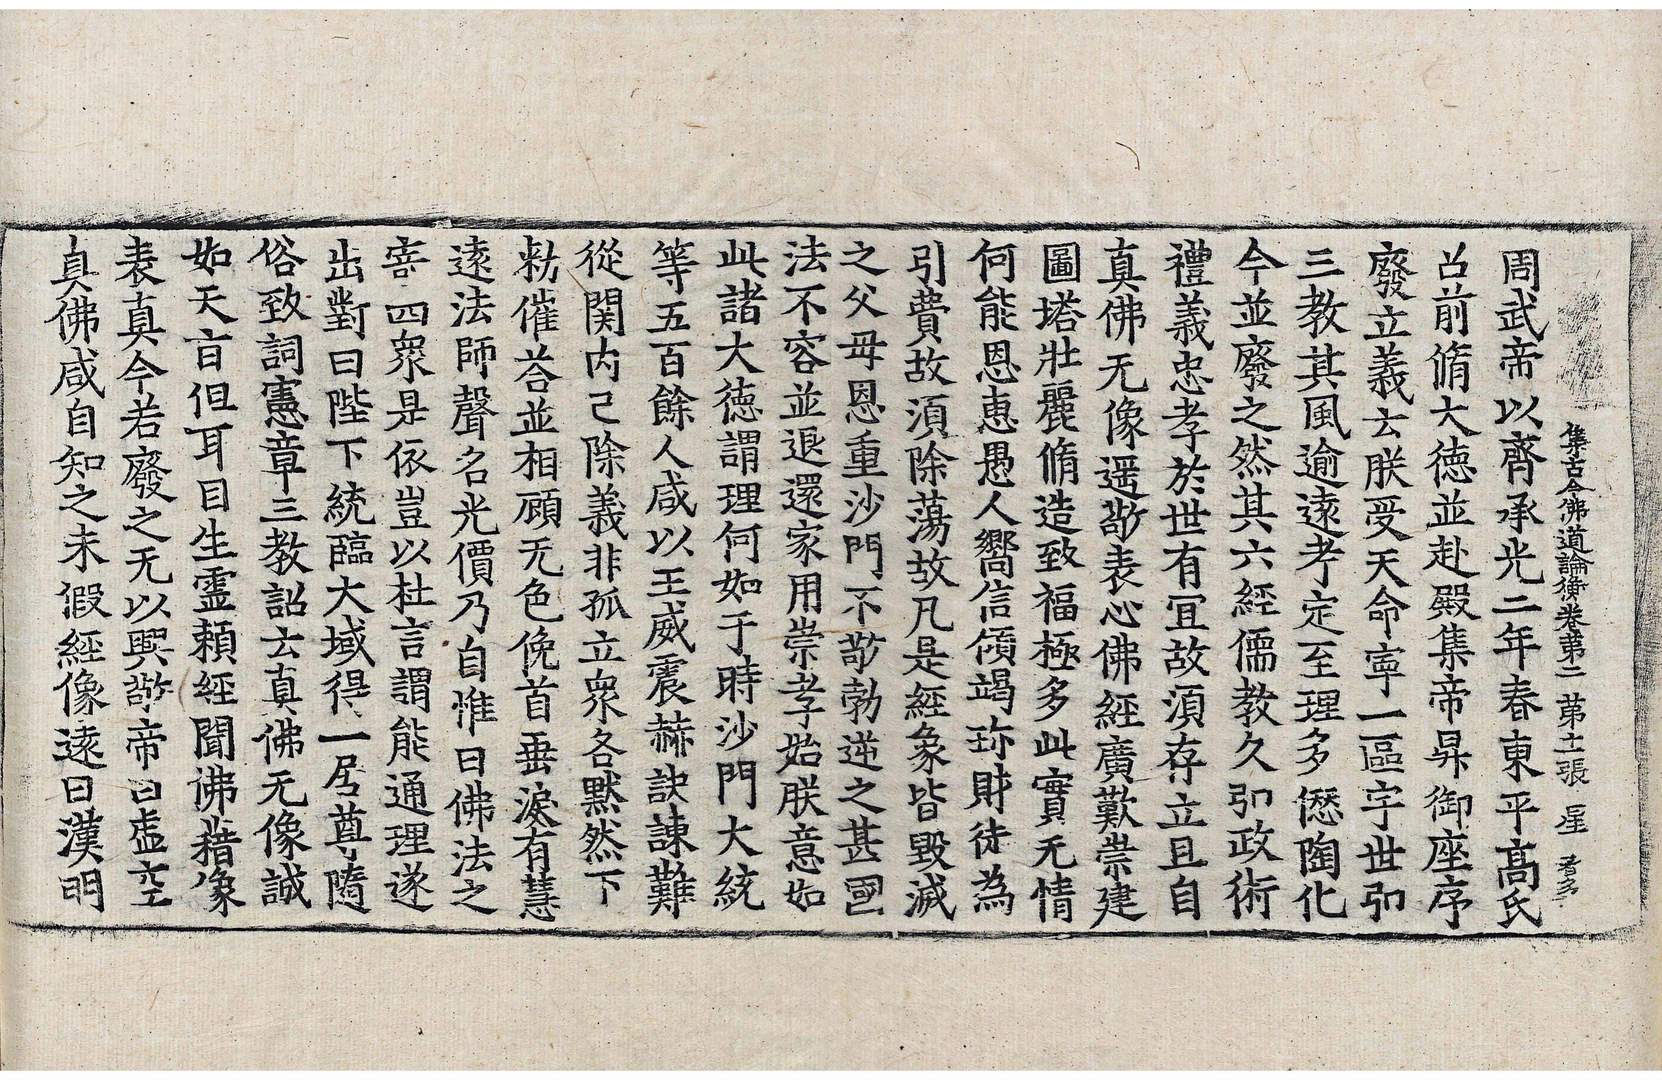 集古今佛道論衡卷第二 第十二張 星
周武帝以齊承光二年春東平高氏
召前脩大德並赴殿集帝昇御座序
廢立義云朕受天命寧一區宇世弘
三教其風逾遠考定至理多愆陶化
今並廢之然其六經儒教久弘政術
禮義忠孝於世有宜故須存立且自
真佛无像遥敬表心佛經廣歎崇建
圖塔壯麗脩造致福極多此實无情
何能恩惠愚人嚮信傾竭珎財徒為
引費故須除蕩故凡是經象皆毀滅
之父母恩重沙門不敬勃逆之甚國
法不容並退還家用崇孝始朕意如
此諸大德謂理何如于時沙門大統
等五百餘人咸以王威震赫訣諫難
從関内已除義非孤立衆各黙然下
勑催荅並相顧无色俛首垂淚有慧
遠法師聲名光價乃自惟曰佛法之
寄四衆是依豈以杜言謂能通理遂
出對曰陛下統臨大域得一居尊隨
俗致詞憲章三教詔云真佛无像誠
如天旨但耳目生靈賴經聞佛藉像
表真今若廢之无以興敬帝曰虛空
真佛咸自知之未假經像遠曰漢明